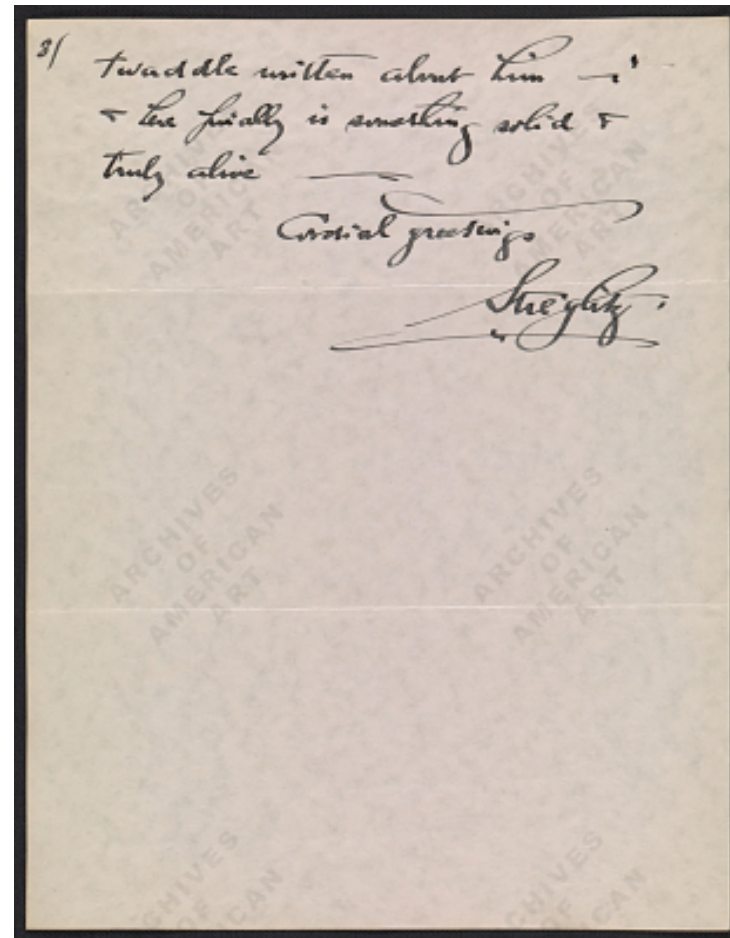 3/
twaddle written about him —
& here finally is something solid &
truly alive —
Cordial greetings
Stieglitz.
ARCHIVES
OF
AMERICAN
ART
ARCHIVES
OF
AMERICAN
ART
ARCHIVES
OF
AMERICAN
ART
ARCHIVES
OF
AMERICAN
ART
ARCHIVES
OF
AMERICAN
ARCHIVES
OF
AMERICAN